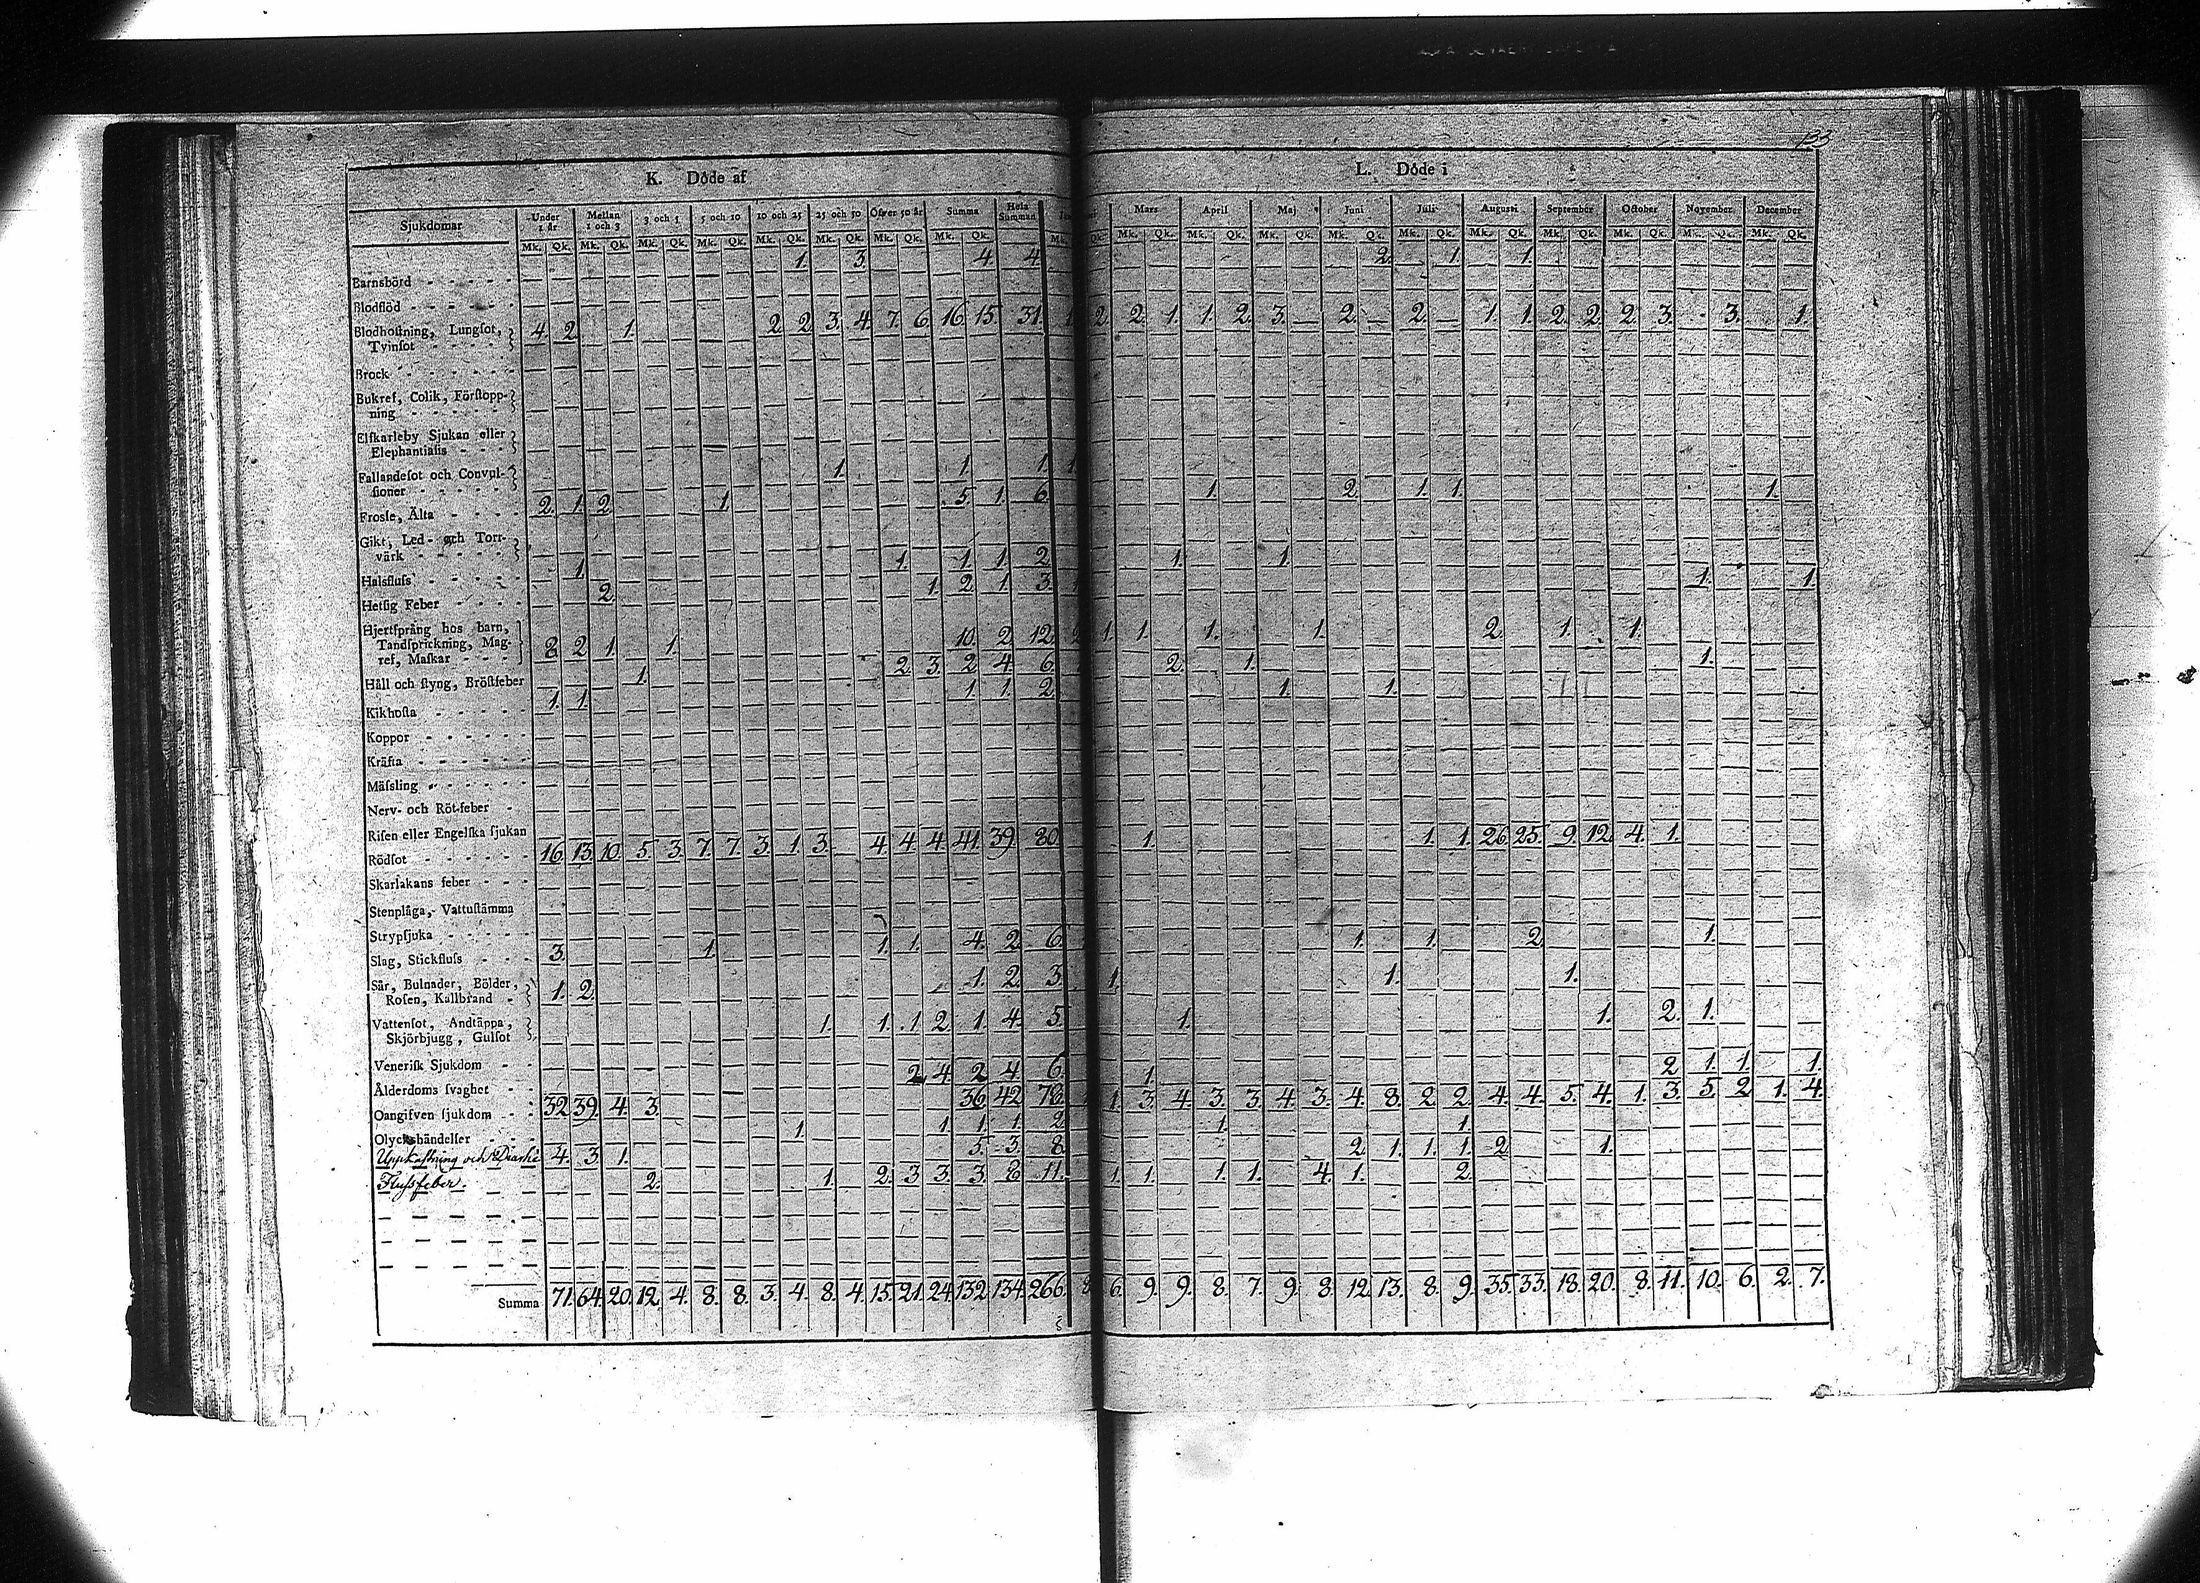 133
K. Döde af
L. Döde i
Sjukdomar Under 1 år Mellan 1 och 3 3 och 5 5 och 10 10 och 25 25 och 50 Öfver 50 år Summa Hela Summan Mars April Maj Juni Juli Augusti September October November December
Mk. Qk. Mk. Qk. Mk. Qk. Mk. Qk. Mk. Qk. Mk. Qk. Mk. Qk. Mk. Qk. Mk. Qk. Mk. Qk. Mk. Qk. Mk. Qk. Mk. Qk. Mk. Qk. Mk. Qk. Mk. Qk. Mk. Qk. Mk. Qk. Mk. Qk.
Barnsbörd - - - - 1. 3. 4. 4. 2. 1. 1.
Blodflöd - - - - -
Blodhoſtning, Lungſot, 4. 2. 1. 2. 2. 3. 4. 7. 6. 16. 15. 31. 1. 2. 2. 1. 1. 2. 3. — 2. — 2. — 1. 1. 2. 2. 2. 3. 3. 1.
Tvinſot - - - -
Brock - - - - -
Bukref, Colik, Förſtopp-
ning - - - - -
Elſkarleby Sjukan eller
Elephantiaſis - - -
Fallandeſot och Convul- 1. 1. 1. 1.
ſioner - - - - -
Froſſe, Älta - - - - 2. 1. 2. 1. 5. 1. 6. 1. 2. 1. 1. 1.
Gikt, Led- och Torr-
värk - - - - -
Halsfluſs - - - - - 1. 1. 1. 1. 2. 1. 1.
Hetſig Feber - - - - 2. 1. 2. 1. 3. 1. 1. 1.
Hjertſprång hos barn,
Tandſprickning, Mag- 8. 2. 1. 1. 10. 2. 12. 2. 1. 1. 1. 1. 2. 1. 1.
ref, Maſkar - - -
Håll och ſtyng, Bröſtfeber 1. 2. 3. 2. 4. 6. 2. 1. 1.
Kikhoſta - - - - - 1. 1. 1. 1. 2. 1. 1.
Koppor - - - - -
Kräfta - - - - -
Mäſsling - - - - -
Nerv- och Röt-feber -
Riſen eller Engelſka ſjukan
Rödſot - - - - - - 16. 13. 10. 5. 3. 7. 7. 3. 1. 3. 4. 4. 4. 41. 39. 80. 1. 1. 1. 26. 25. 9. 12. 4. 1.
Skarlakans feber - - -
Stenplåga, Vattuſtämma
Strypſjuka - - - - -
Slag, Stickfluſs - - - 3. 1. 1. 1. 4. 2. 6. 1. 1. 2. 1.
Sår, Bulnader, Bölder, 1. 2. 1. 2. 3. 1. 1. 1.
Roſen, Kallbrand -
Vattenſot, Andtäppa, 1. 1. 1. 2. 1. 4. 5. 1. 1. 2. 1.
Skjörbjugg, Gulſot
Veneriſk Sjukdom - -
Ålderdoms ſvaghet - - 2. 4. 2. 4. 6. 1. 2. 1. 1. 1.
Oangifven ſjukdom - - 32. 39. 4. 3. 36. 42. 78. 1. 3. 4. 3. 3. 4. 3. 4. 8. 2. 2. 4. 4. 5. 4. 1. 3. 5. 2. 1. 4.
Olyckshändelſer - - - 1. 1. 1. 1. 2. 1. 1.
Uppkastning och Diarhé 4. 3. 1. 5. 3. 8. 2. 1. 1. 1. 2. 1.
Flussfeber. 2. 1. 2. 3. 3. 3. 8. 11. 1. 1. 1. 1. 4. 1. 2.
Summa 71. 64. 20. 12. 4. 8. 8. 3. 4. 8. 4. 15. 21. 24. 132. 134. 266. 8. 6. 9. 9. 8. 7. 9. 8. 12. 13. 8. 9. 35. 33. 18. 20. 8. 11. 10. 6. 2. 7.